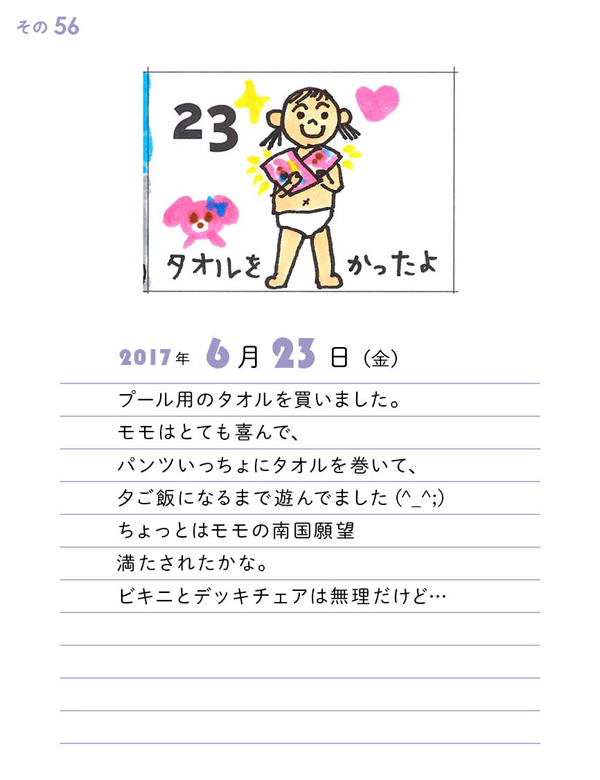 その 56
23
タオルを かったよ
2017年 6月 23日 (金)
プール用のタオルを買いました。
モモはとても喜んで、
パンツいっちょにタオルを巻いて、
夕ご飯になるまで遊んでました (^_^;)
ちょっとはモモの南国願望
満たされたかな。
ビキニとデッキチェアは無理だけど…